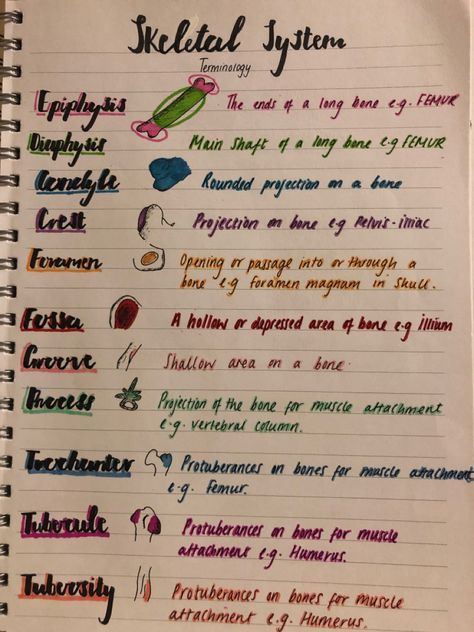 Skeletal System
Terminology
Epiphysis The ends of a long bone e.g. FEMUR
Diaphysis Main shaft of a long bone e.g FEMUR
Condyle Rounded projection on a bone
Crest Projection on bone e.g Pelvis-illiac
Foramen Opening or passage into or through a
bone e.g foramen magnum in skull.
Fossa A hollow or depressed area of bone e.g illium
Groove Shallow area on a bone.
Process Projection of the bone for muscle attachment
e.g. vertebral column.
Trochanter Protuberances on bones for muscle attachment
e.g. Femur.
Tubercule Protuberances on bones for muscle
attachment e.g. Humerus.
Tuberosity Protuberances on bones for muscle
attachment e.g. Humerus.